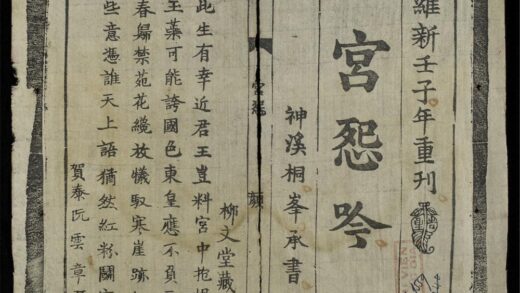 維新壬子年重刊
宮怨吟
神溪桐峯承書
柳文堂藏
宮怨
此生有幸近君王豈料宮中抱
玉蘂可能誇國色東皇應不負
春歸禁苑花纔放犧馭寒崖跡
些意憑誰天上語猶然紅粉
賀泰阮雲章